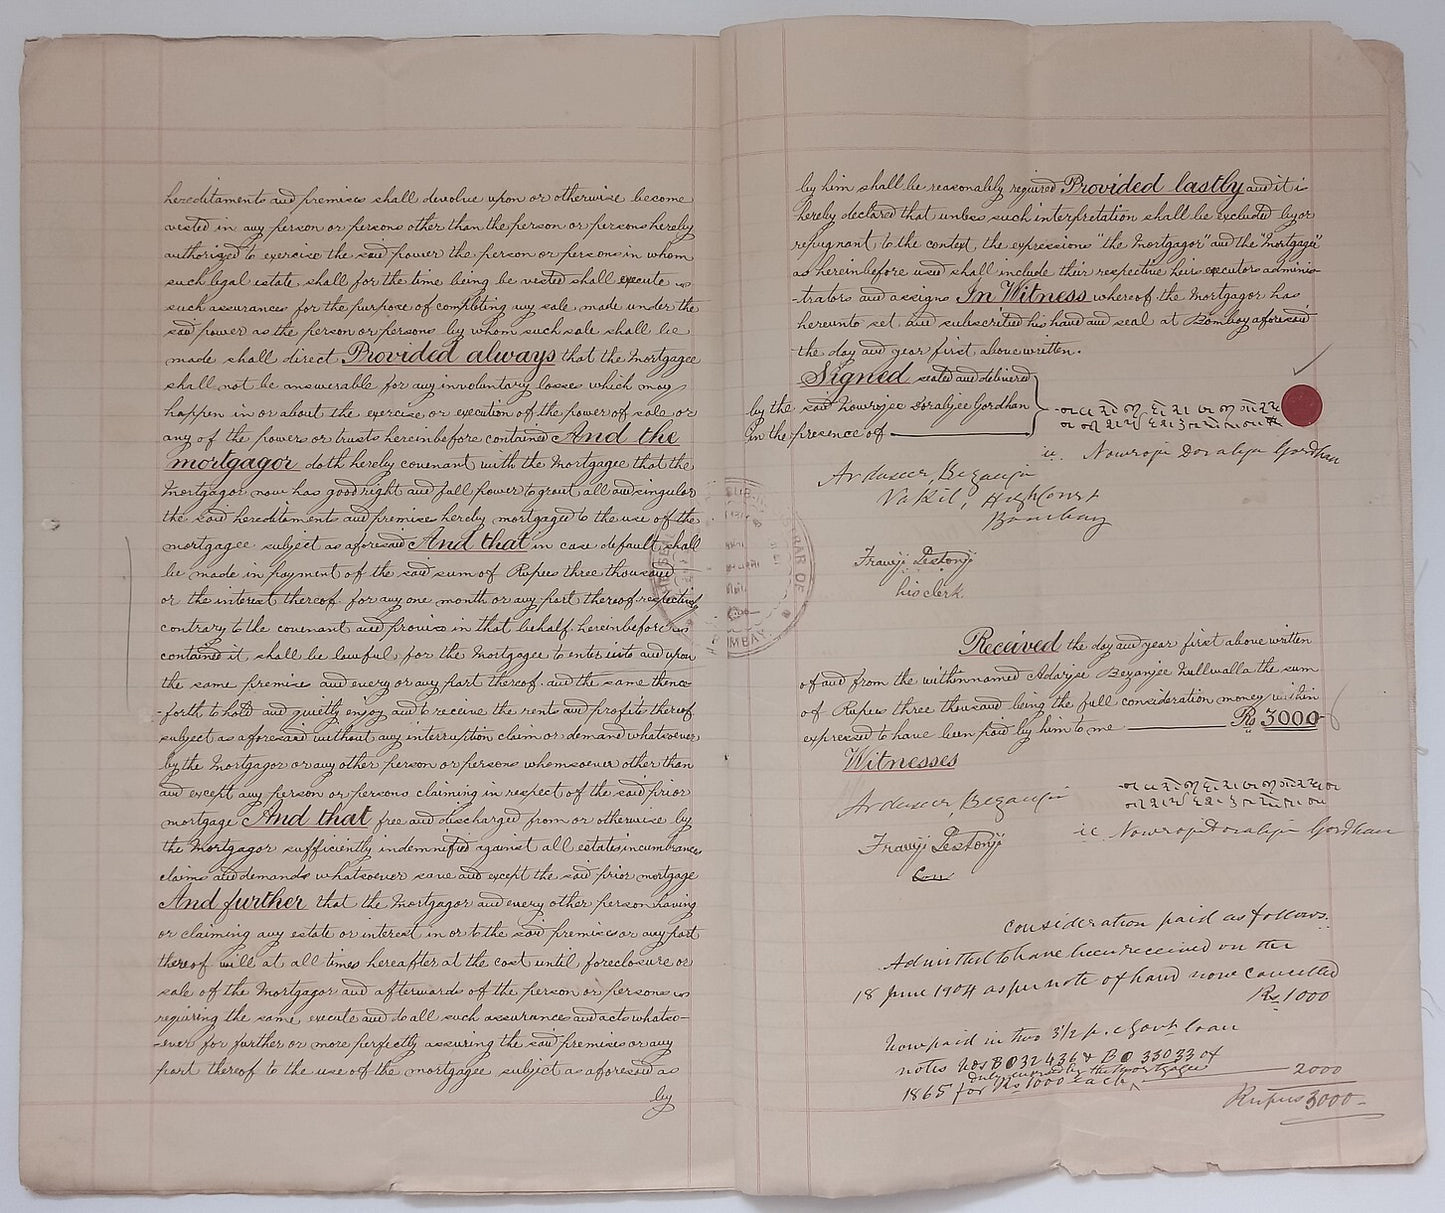 hereditaments and premises shall devolve upon or otherwise become
vested in any person or persons other than the person or persons hereby
authorized to exercise the said power the person or persons in whom
such legal estate shall for the time being be vested shall execute
such assurances for the purpose of completing any sale made under the
said power as the person or persons by whom such sale shall be
made shall direct Provided always that the Mortgagee
shall not be answerable for any involuntary losses which may
happen in or about the exercise or execution of the power of sale or
any of the powers or trusts hereinbefore contained And the
mortgagor doth hereby covenant with the Mortgagee that the
Mortgagor now has good right and full power to grant all and singular
the said hereditaments and premises hereby mortgaged to the use of the
mortgagee subject as aforesaid And that in case default shall
be made in payment of the said sum of Rupees three thousand
or the interest thereof for any one month or any part thereof respectively
contrary to the covenant and proviso in that behalf hereinbefore
contained it shall be lawful for the Mortgagee to enter into and upon
the same premises and every or any part thereof and the same thence
-forth to hold and quietly enjoy and to receive the rents and profits thereof
subject as aforesaid without any interruption claim or demand whatsoever
by the Mortgagor or any other person or persons whomsoever other than
and except any person or persons claiming in respect of the said prior
mortgage And that free and discharged from or otherwise by
the Mortgagor sufficiently indemnified against all estates incumbrances
claims and demands whatsoever save and except the said prior mortgage
And further that the Mortgagor and every other person having
or claiming any estate or interest in or to the said premises or any part
thereof will at all times hereafter at the cost until foreclosure or
sale of the Mortgagor and afterwards of the person or persons
requiring the same execute and do all such assurances and acts whatso-
-ever for further or more perfectly assuring the said premises or any
part thereof to the use of the mortgagee subject as aforesaid as
by
by him shall be reasonably required Provided lastly and it is
hereby declared that unless such interpretation shall be excluded by or
repugnant to the context, the expressions "the Mortgagor" and the "Mortgagee"
as hereinbefore used shall include their respective heirs executors adminis-
-trators and assigns In Witness whereof the Mortgagor has
hereunto set and subscribed his hand and seal at Bombay aforesaid
the day and year first above written.
Signed sealed and delivered
by the said Nowrojee Dorabjee Gordhan
in the presence of
Nowroji Dorabji Gordhan
Ardeseer Bezanji
Vakil, High Court
Bombay
Framji Pestonji
his clerk
BOMBAY
Received the day and year first above written
of and from the withinnamed Adarjee Bezanjee Nullwalla the sum
of Rupees three thousand being the full consideration money within
expressed to have been paid by him to me Rs 3000
Witnesses
Ardeseer Bezanji
Framji Pestonji
Nowroji Dorabji Gordhan
Consideration paid as follows:
Admitted to have been received on the
18 June 1904 as per note of hand now cancelled
Rs 1000
Now paid in two 3½ p. c Govt loan
notes Nos B032436 & B033033 of
duly endorsed by the Mortgagee
1865 for Rs 1000 each 2000
Rupees 3000-